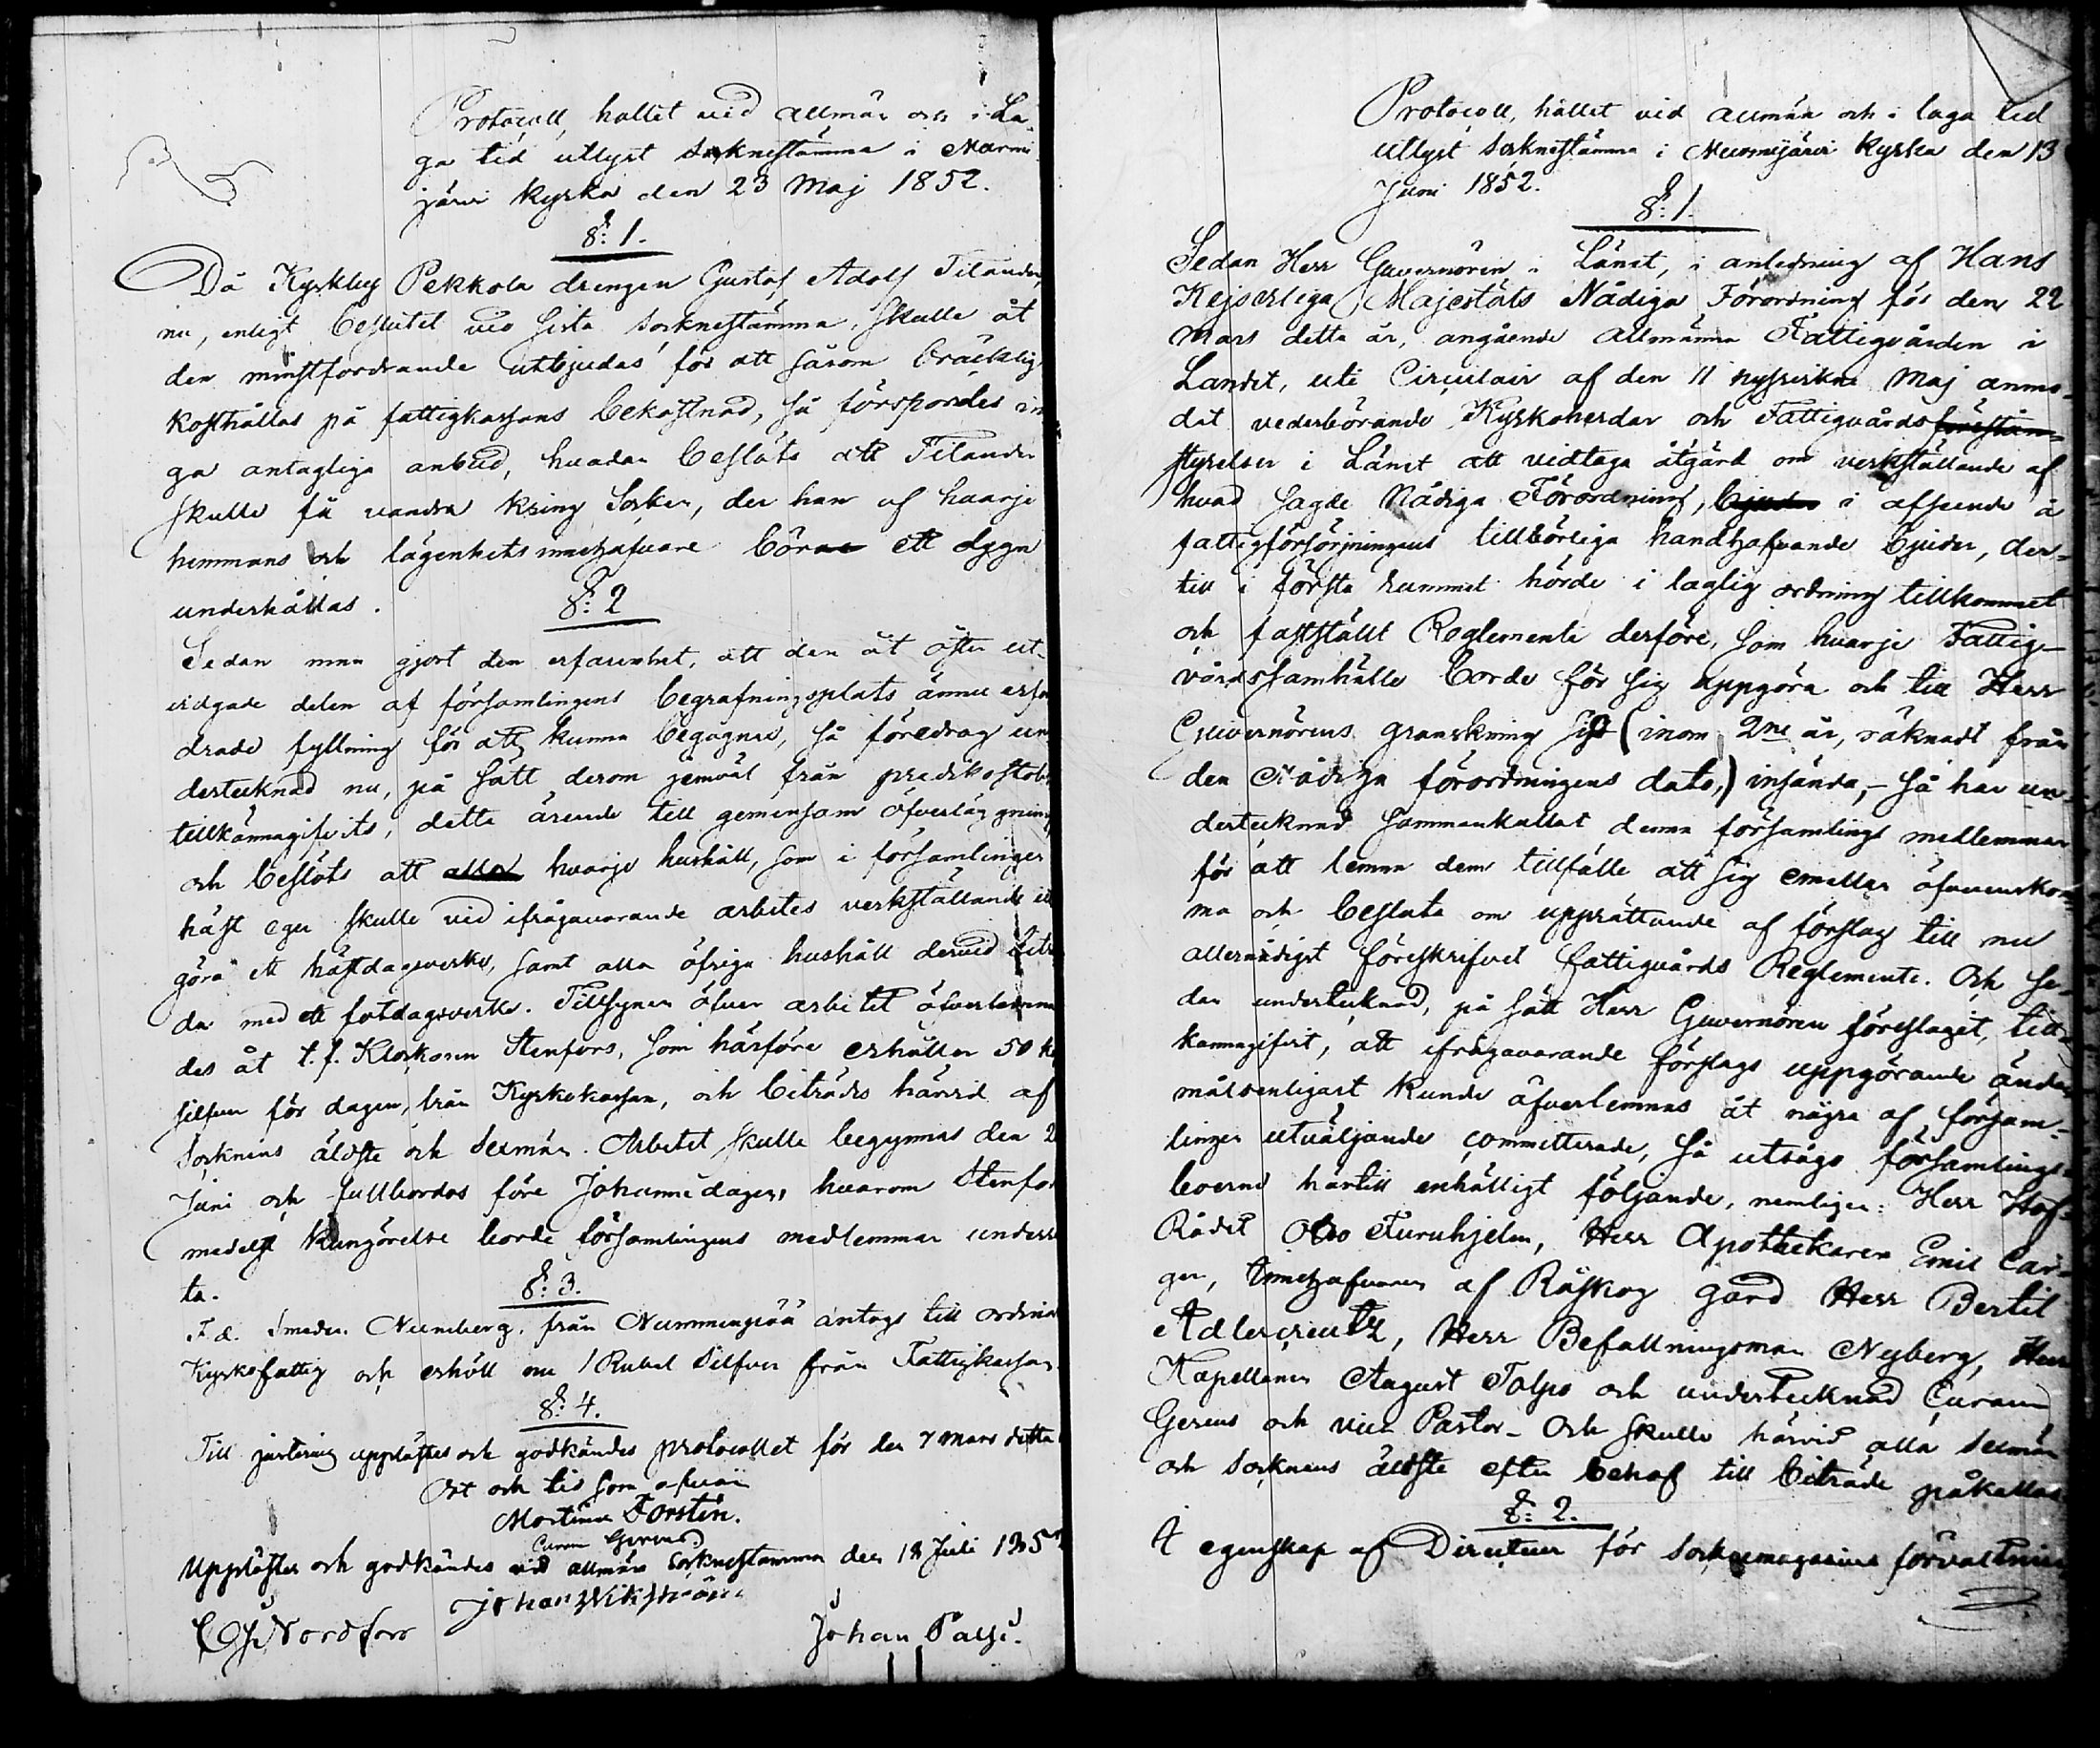 Protocoll, hållet vid allmän och i La-
ga tid utlyst Sockneståmma i Nurmi-
järvi kyrka den 23 Maj 1852.
§: 1.
Då Kyrkby Pekkola drengen Gustaf Adolf Tilander,
nu, enligt beslutet vid sista Socknestämma, skulle åt
den minstfordrande utbjudas för att såsom bräcklig
kosthållas på fattigkassans bekostnad, så förspordes in
ga antagliga anbud, hvadan beslöts att Tilander
skulle få vandra kring Socken, der han af hvarje
hemmans och lägenhets innehafvare bör ett dygn
underhållas.
§: 2
Sedan man gjort den erfarenhet, att den åt öster ut-
vidgade delen af församlingens begrafningsplats ännu erfo
drade fyllning för att kunna begagnas, så föredrog un
dertecknad nu, på sätt derom jemväl från predikostolen
tillkännagifvits, detta ärende till gemensam öfverläggning
och beslöts att alla hvarje hushåll, som i församlingen
häst eger skulle vid ifrågavarande arbetes verkställande ut
göra ett hästdagsverke, samt alla öfriga hushåll dervid biträ
da med ett fotdagsverke. Tillsynen öfver arbetet öfverlemna
des åt t.f. Klockaren Stenfors, som härföre erhåller 50 k
silfver för dagen, från Kyrkokassan, och biträdes härvid af
Socknens äldste och Sexmän. Arbetet skulle begynnas den 2
Juni och fullbordas före Johannedagen, hvarom Stenfor
medelst kungörelse borde församlingens medlemmar underrä
ta.
§: 3.
F.d. Smeden Numberg, från Nummenpää antogs till ordinar
Kyrkofattig och erhöll nu 1 Rubel Silfver från Fattigkassan.
§: 4.
Till justering upplästes och godkändes protocollet för den 7 Mars detta
Ort och tid som ofvan
Mortimer Forstén.
Curam Gerens
Uppläster och godkändes vid allmän Socknestämma den 18 Juli 185
Johan Wikström
Nordfors
Johan Palsi.
Protocoll, hållet vid allmän och i laga tid
utlyst Socknestämma i Nurmijärvi Kyrka den 13
Juni 1852.
§: 1.
Sedan Herr Guvernören i Länet, i anledning af Hans
Kejserliga Majestäts Nådiga Förordning för den 22
Mars detta år, angående allmänna Fattigvården i
Landet, uti Circulair af den 11 nyssvikne Maj anmo-
dat vederbörande Kyrkoherdar och Fattigvårds
styrelser i Länet att vidtaga åtgärd om verkställande af
hvad sagde Nådiga Förordning, bjuder i afseende å
fattigförsörjningens tillbörliga handhafvande bjuder, der-
till i första rummet hörde i laglig ordning tillkommet
och fastställt Reglemente derföre, som hvarje Fattig-
vårdssamhälle borde för sig uppgöra och till Herr
Guvernörens granskning sist (inom 2ne år, räknadt från
den Nådiga förordningens dato,) insända, - så har un-
dertecknad sammankallat denna församlings medlemmar
för att lemna dem tillfälle att sig emellan öfverenskom-
ma och besluta om upprättande af förslag till nu
allernådigst föreskrifvet Fattigvårds Reglemente. Och se-
dan undertecknad, på sätt Herr Guvernören föreslagit, till-
kännagifvit, att ifrågavarande förslags uppgörande ända-
målsenligast kunde öfverlemnas åt några af försam-
lingen utväljande committerade, så utsågs församlings-
boerne härtill enhälligt följande, nemligen: Herr Hof-
Rådet Otto Furuhjelm, Herr Apothekaren Emil Cai-
ger, innehafvaren af Röskog gård Herr Bertil
Adlercreutz, Herr Befallningsman Nyberg, Herr
Kapellanen August Talpo och undertecknad Curam
Gerens och vice Pastor - Och skulle härvid alla Sexmän
och Socknens äldste efter behof till biträde påkallas.
§: 2.
I egenskap af Directeur för Sockne magasins förvaltning